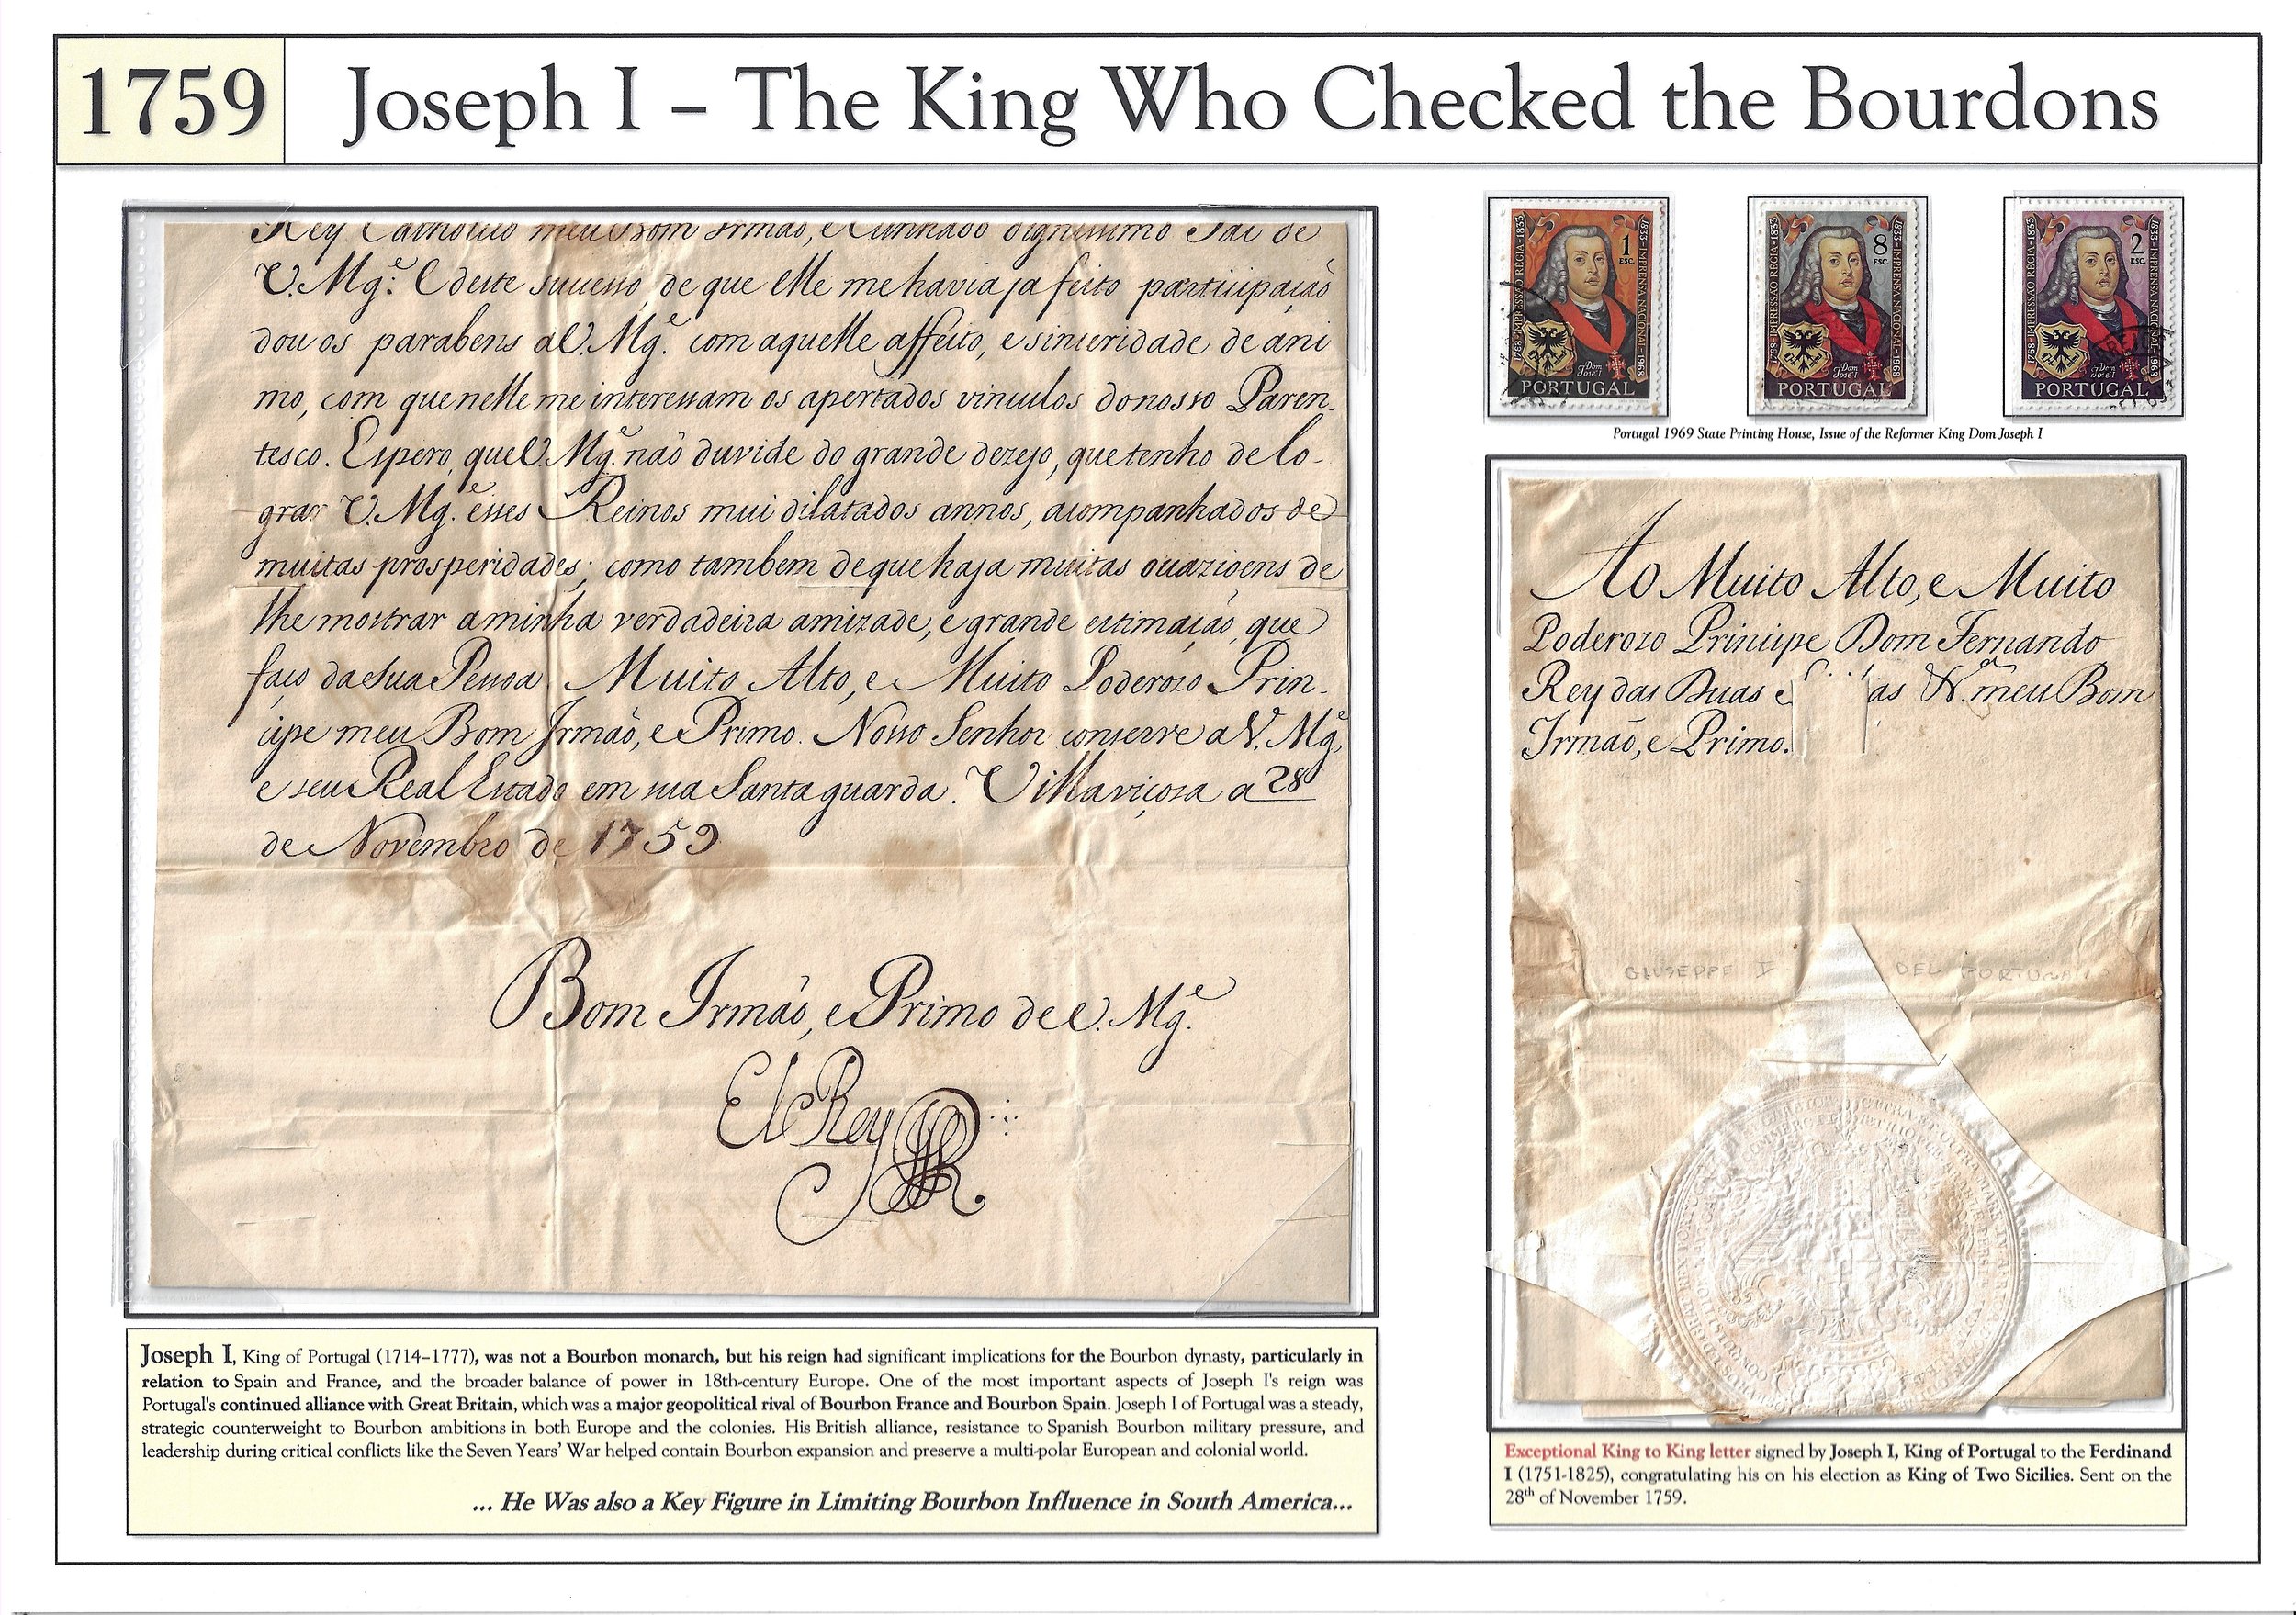 1759
Joseph I – The King Who Checked the Bourdons
Rey Catholico meu Bom Irmaõ, e Cunhado dignissimo Pai de
V. Mg.e E deste sucesso, de que elle me havia ja feito participaçaõ
dou os parabens a V. Mg.e com aquelle affeito, e sinceridade de ani
mo, com que nelle me interessam os apertados vinculos do nosso Paren-
tesco. Espero, que V. Mg.e naõ duvide do grande dezejo, que tenho de lo-
grar V. Mg.e esses Reinos mui dilatados annos, acompanhados de
muitas prosperidades; como tambem de que haja muitas ocazioens de
lhe mostrar a minha verdadeira amizade, e grande estimaçaõ, que
faço da sua Pessoa. Muito Alto, e Muito Poderozo Prin-
cipe meu Bom Irmaõ, e Primo. Nosso Senhor conserve a V. Mg.e
e seu Real Estado em sua Santa guarda. Villaviçoza a 28
de Novembro de 1759
Bom Irmaõ, e Primo de V. Mg.e
El Rey
1768-IMPRESSÃO RÉGIA-1833
1833-IMPRENSA NACIONAL-1968
1 ESC.
Dom José I
PORTUGAL
1768-IMPRESSÃO RÉGIA-1833
1833-IMPRENSA NACIONAL-1968
8 ESC.
Dom José I
PORTUGAL
1768-IMPRESSÃO RÉGIA-1833
1833-IMPRENSA NACIONAL-1968
2 ESC.
Dom José I
PORTUGAL
Portugal 1969 State Printing House, Issue of the Reformer King Dom Joseph I
Ao Muito Alto, e Muito
Poderozo Principe Dom Fernando
Rey das Duas as meu Bom
Irmaõ, e Primo.
GIUSEPPE I DEL PORTOGALLO
Joseph I, King of Portugal (1714–1777), was not a Bourbon monarch, but his reign had significant implications for the Bourbon dynasty, particularly in
relation to Spain and France, and the broader balance of power in 18th-century Europe. One of the most important aspects of Joseph I's reign was
Portugal's continued alliance with Great Britain, which was a major geopolitical rival of Bourbon France and Bourbon Spain. Joseph I of Portugal was a steady,
strategic counterweight to Bourbon ambitions in both Europe and the colonies. His British alliance, resistance to Spanish Bourbon military pressure, and
leadership during critical conflicts like the Seven Years' War helped contain Bourbon expansion and preserve a multi-polar European and colonial world.
... He Was also a Key Figure in Limiting Bourbon Influence in South America...
Exceptional King to King letter signed by Joseph I, King of Portugal to the Ferdinand
I (1751-1825), congratulating his on his election as King of Two Sicilies. Sent on the
28th of November 1759.